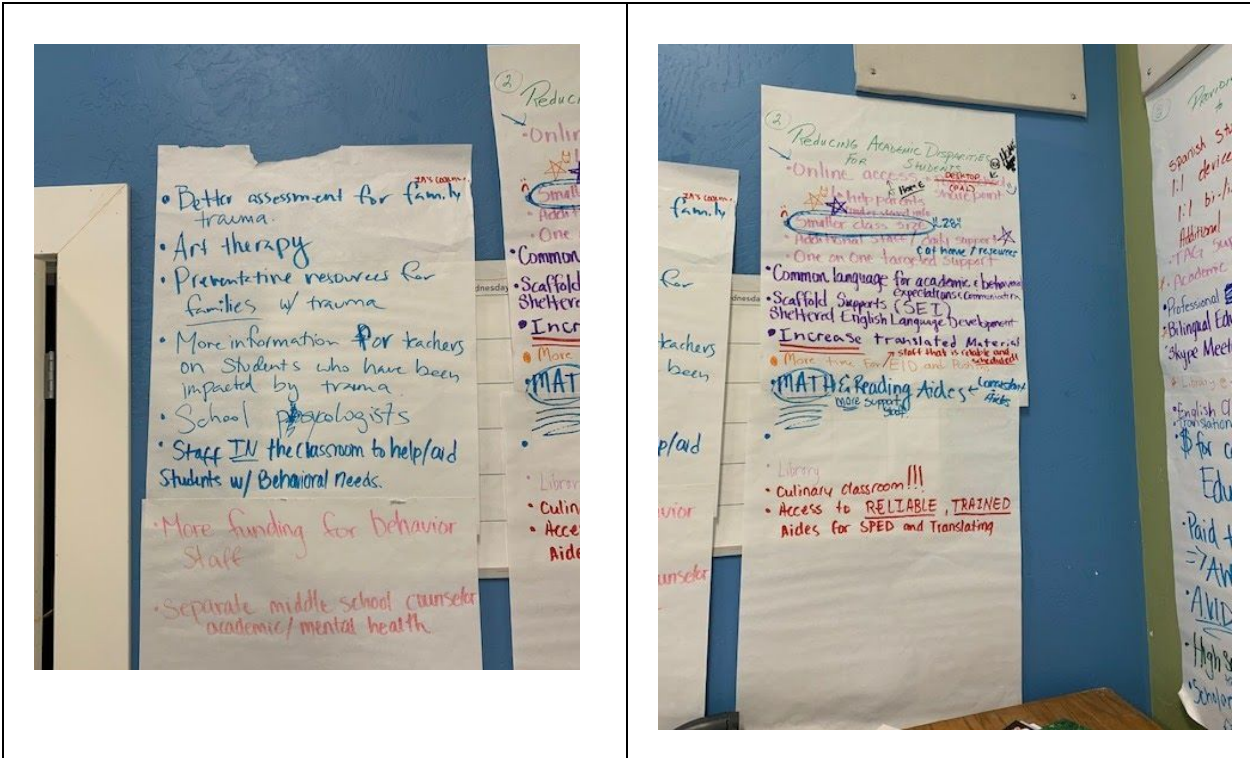 • Better assessment for family
trauma.
• Art therapy
• Preventative resources for
families w/ trauma
• More information for teachers
on students who have been
impacted by trauma
• School
• Staff IN the classroom to help/aid
Students w/ Behavioral needs.
• More funding for behavior
Staff
• Separate middle school counselor
academic/mental health
② Reduci
• Onlin
Small
• Addit
• One
• Common
• Scaffold
Sheltere
• Incr
• More
• MAT
• Librar
• Culin
• Acce
Aide
dnesday
family
for
teachers
been
p/aid
avior
unselor
dnesday
② REDUCING ACADEMIC DISPARITIES
FOR STUDENTS
• Online access
Home
DESKTOP
help parents
Smaller class size <28%
• Additional staff / daily support
@ home / resources
• One on One targeted support
• Common language for academic & behavioral
expectations & communication
• Scaffold Supports (SEI)
Sheltered English Language Development
• Increase translated Material
staff that is reliable and
scheduled!
• More time for EID and
• MATH & Reading Aides ← Consistent
Aides
more support
staff
• Library
• Culinary classroom!!!
• Access to RELIABLE, TRAINED
Aides for SPED and Translating
Spanish Stu
1:1 device
1:1 bi-li
Additional
• TAG Sup
• Academic
• Professional
• Bilingual Edu
• Skype Meet
• Library
• English Cl
translation
• $ for c
Edu
• Paid t
=> AW
• AVID
• High S
• Scholar